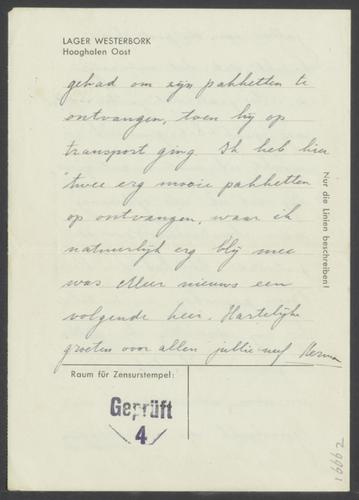 LAGER WESTERBORK
Hooghalen Oost
gehad om zijn pakketten te
ontvangen, toen hij op
transport ging. Ik heb hier
twee erg mooie pakketten
op ontvangen, waar ik
natuurlijk erg blij mee
was Meer nieuws een
volgende keer. Hartelijke
groeten voor allen jullie neef Herman
Nur die Linien beschreiben!
Raum für Zensurstempel:
Geprüft
4
16662